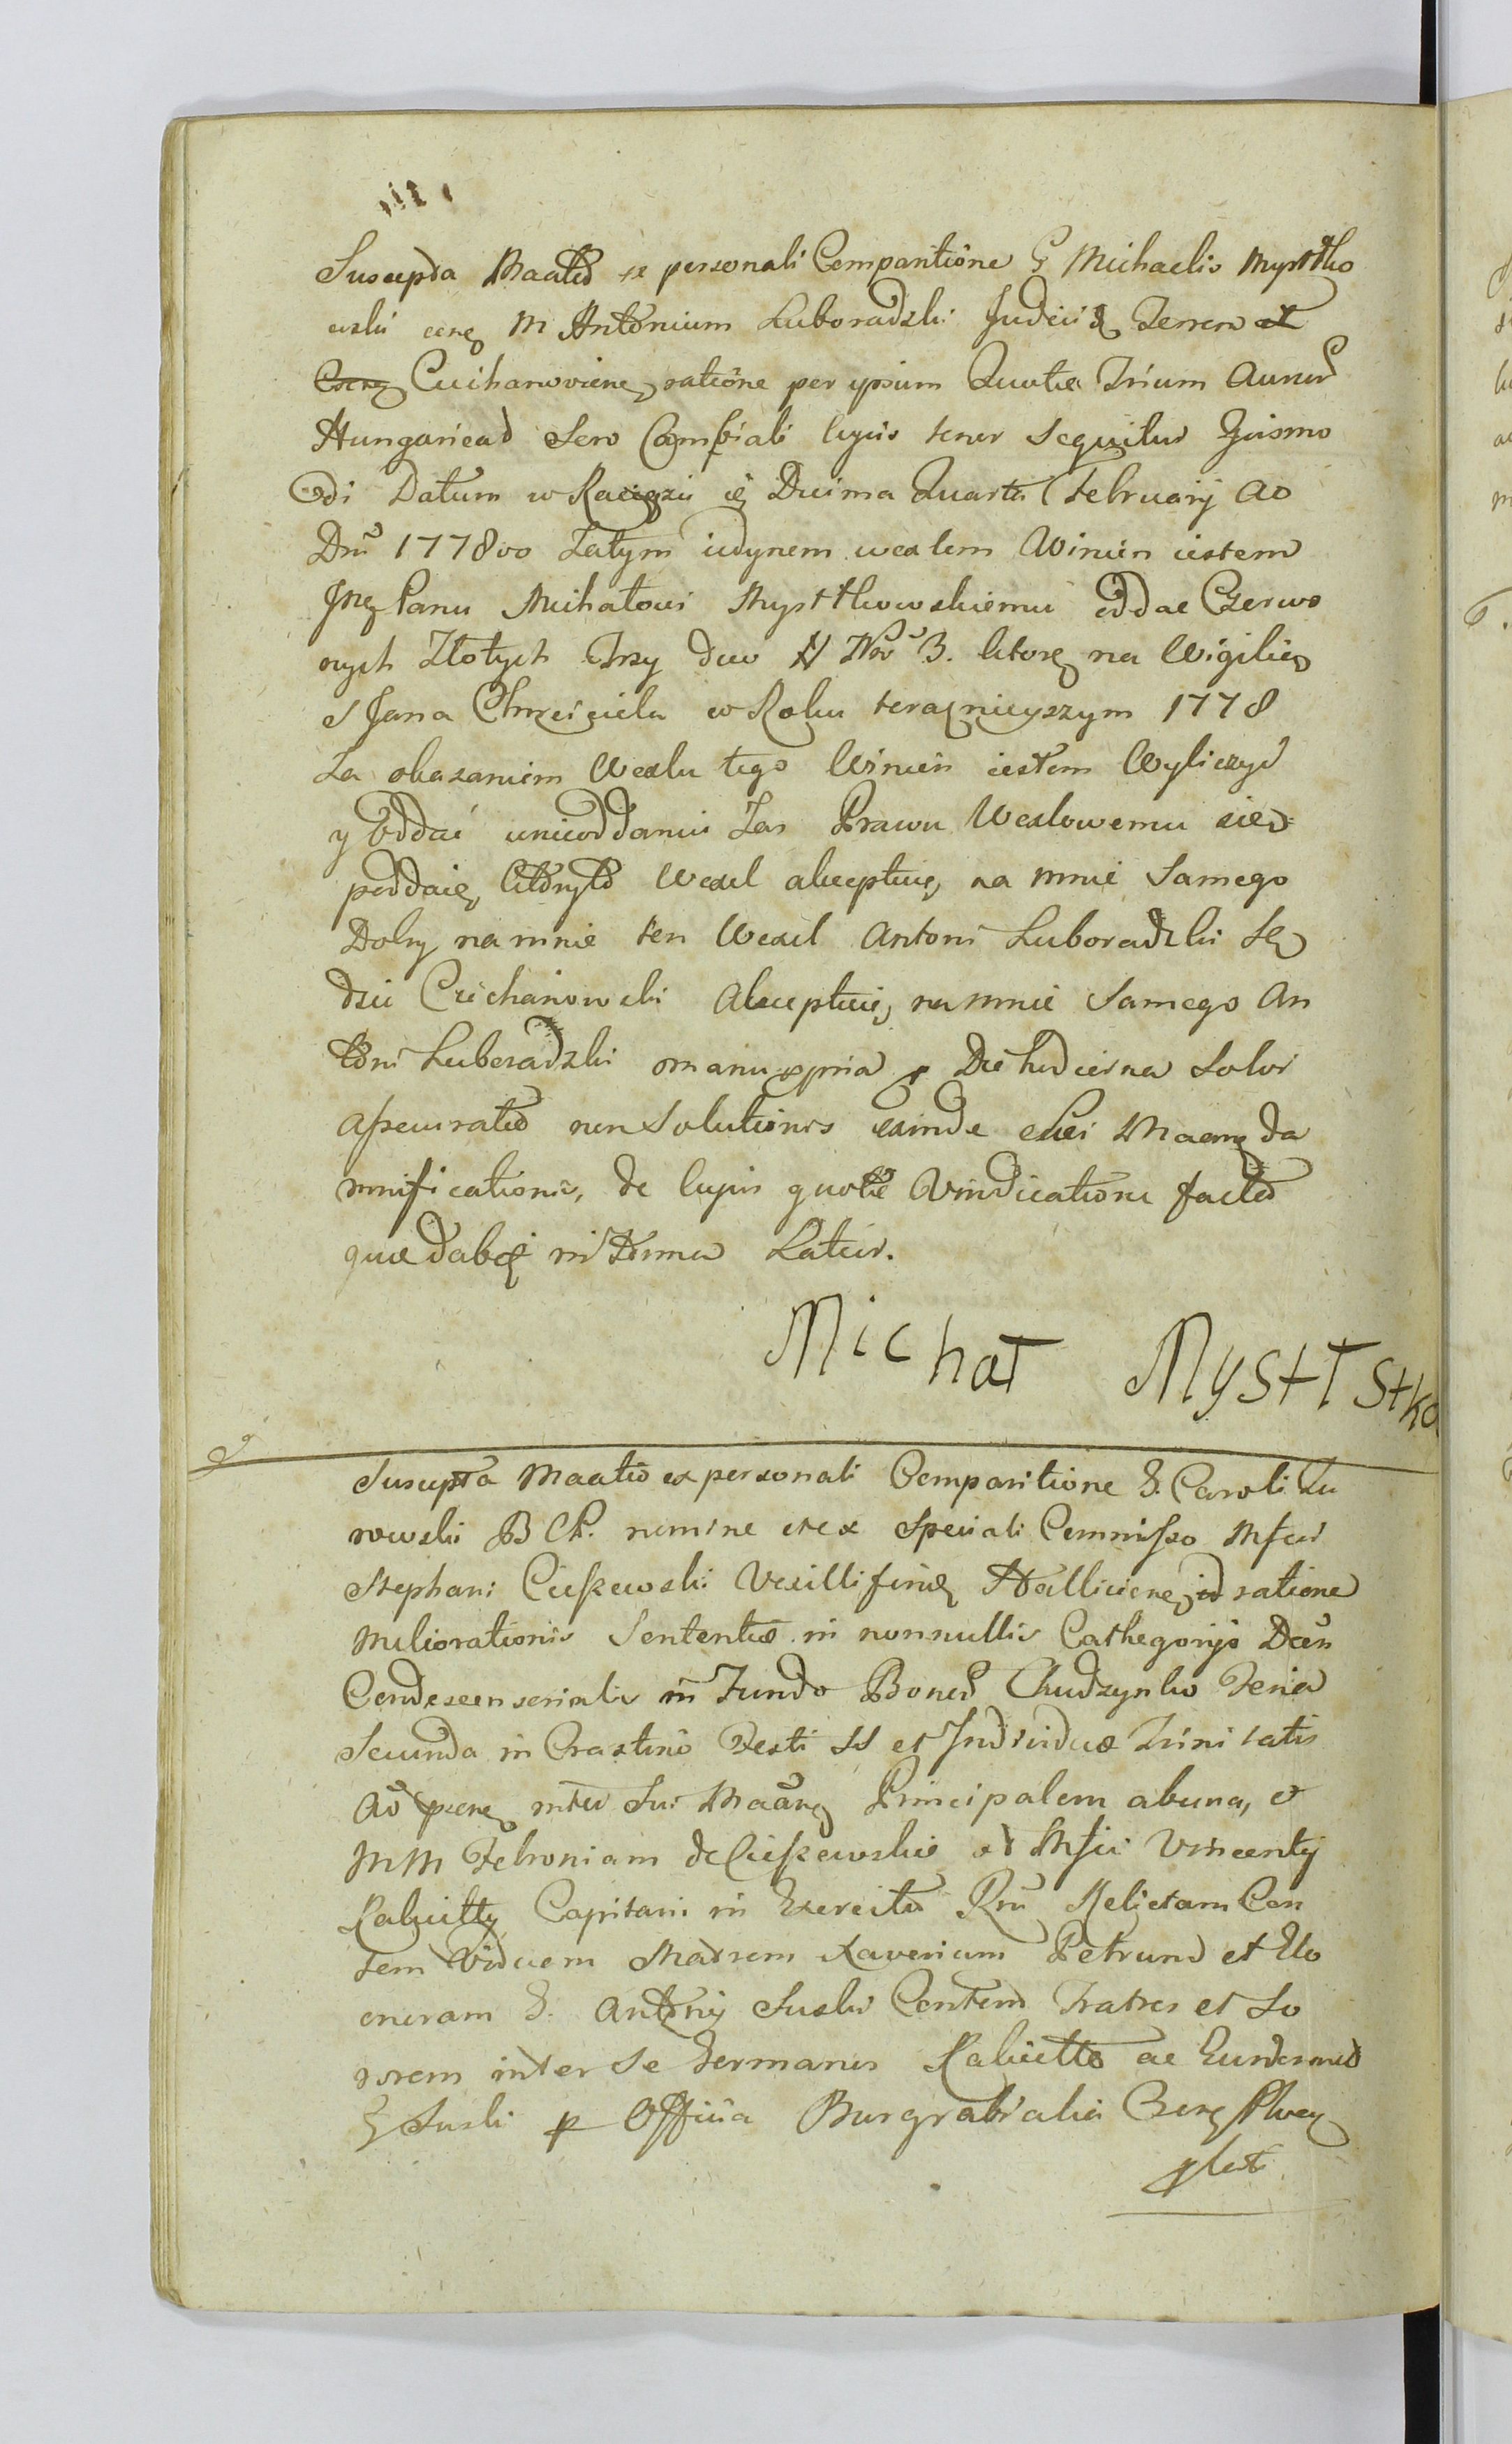 Suscepta Maatio ex personali Comparitione G Michaelis Mystko
wski cerę M Antonium Luboradzki Judicię Terren et
Ciechanoviene, ratione per ipsum Quotta Trium Aureor
Hungaricad Sero Cambiali cujus tenor sequitur Ejusmo
di Datum w Raciążu ię Decima Quarta February Ao
Dni 1778vo Zatym jedynem wexlem Winien iestem
Jmę Panu Michałowi Mystkowskiemu oddac Czerwo
nych Złotych Trzy dico # Nro 3. ktorę na Wigilię
S Jana Chrzciciela w Roku teraznieyszym 1778
Za okazaniem Wexlu tego Winien iestem Wyliczyć
y Oddać unieoddaniu Zas Prawu Wexlowemu się
poddaię, któryto Wexel akceptuię na mnie Samego
Dolny na mnie ten Wexel Antoni Luboradzki Sę
dzie Ciechanowski Akceptuię na mnie Samego An
toni Luboradzki manu ppria Die hodierna Solvi
assecuratio non Solutionis exinde Sui Maarę da
mnificationis, de cujus quotta Vindicationi factio
quae dabę in Termo Latius.
Michał Myst
Suscepta Maatio ex personali Comparitione G. Caroli Zu
rowski B Ch. nomine et ex Speciali Commisso Mfci
Stephani Cieszewski Vexilliferię Halliciene, id ratione
meliorationis Sententiae in nonnullis Cathegorijs Dcen
Condescensorialis in Fundo Bonor Chudzynko Feria
Secunda in Crastino Festi SS et Individuae Trinitatis
Ao psenę inter Sui Maarę Principalem abuna, et
MM Febroniam de Cieszewskie ol Mfci Vincenty
Rabiette Capitani in Exercitu Rni Relictam Con
tem Viduam Matrem Xaverium Petrum et Ele
onoram G. Antonij Suski Contem Fratres et So
rorem inter Se Germanos Rabiette ac Eundemmet
G Suski p Officia Burgrabialia Cerę Plocę
plat